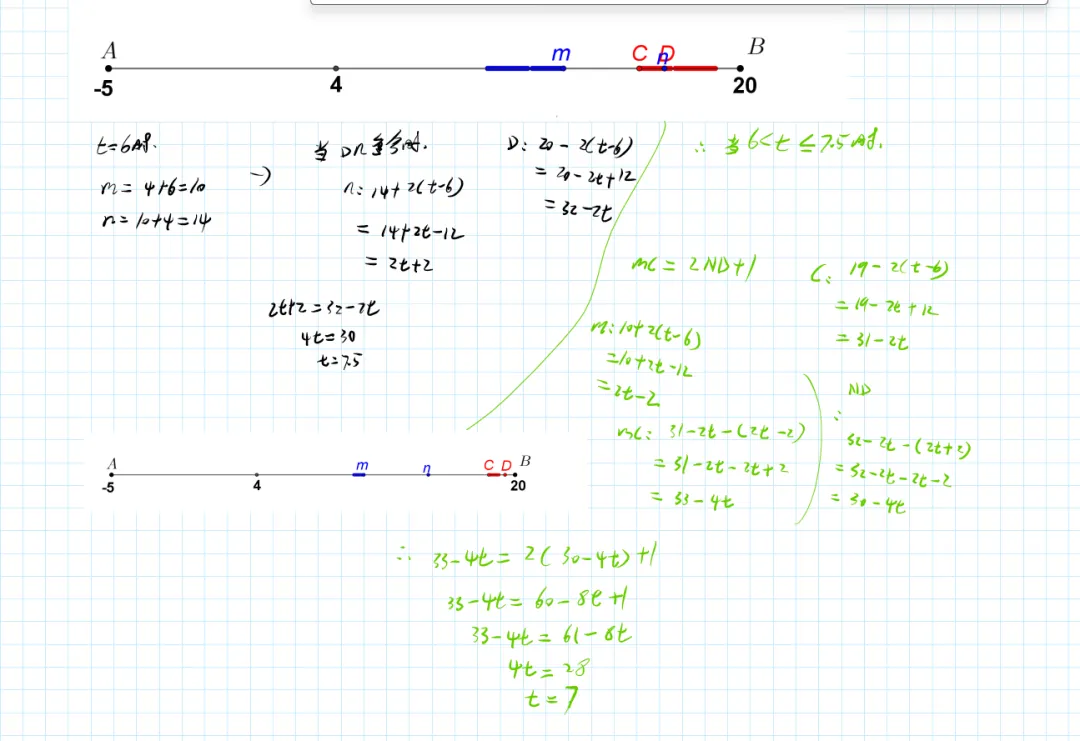 A m C D n B
-5 4 20
t=6时.
m = 4+6=10
n=10+4=14
→
当 Dn重合时.
n: 14+2(t-6)
= 14+2t-12
= 2t+2
D: 20-2(t-6)
= 20-2t+12
= 32-2t
2t+2=32-2t
4t=30
t=7.5
∴ 当6<t≤7.5时.
mC = 2ND+1
C: 19-2(t-6)
=19-2t+12
=31-2t
m: 10+2(t-6)
=10+2t-12
=2t-2
mC: 31-2t-(2t-2)
=31-2t-2t+2
=33-4t
ND
:
32-2t-(2t+2)
=32-2t-2t-2
=30-4t
A m n C D B
-5 4 20
∴ 33-4t=2(30-4t)+1
33-4t=60-8t+1
33-4t=61-8t
4t=28
t=7